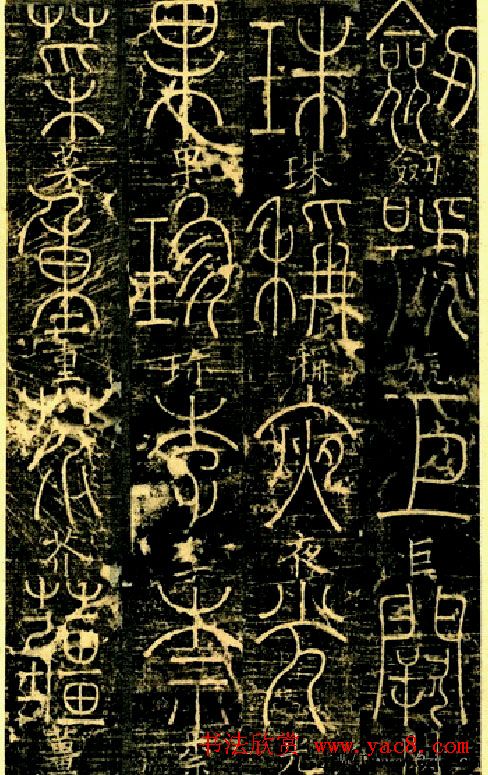 劍號巨闕
珠稱夜光
果珍李柰
菜重芥薑
书法欣赏 www.yac8.com